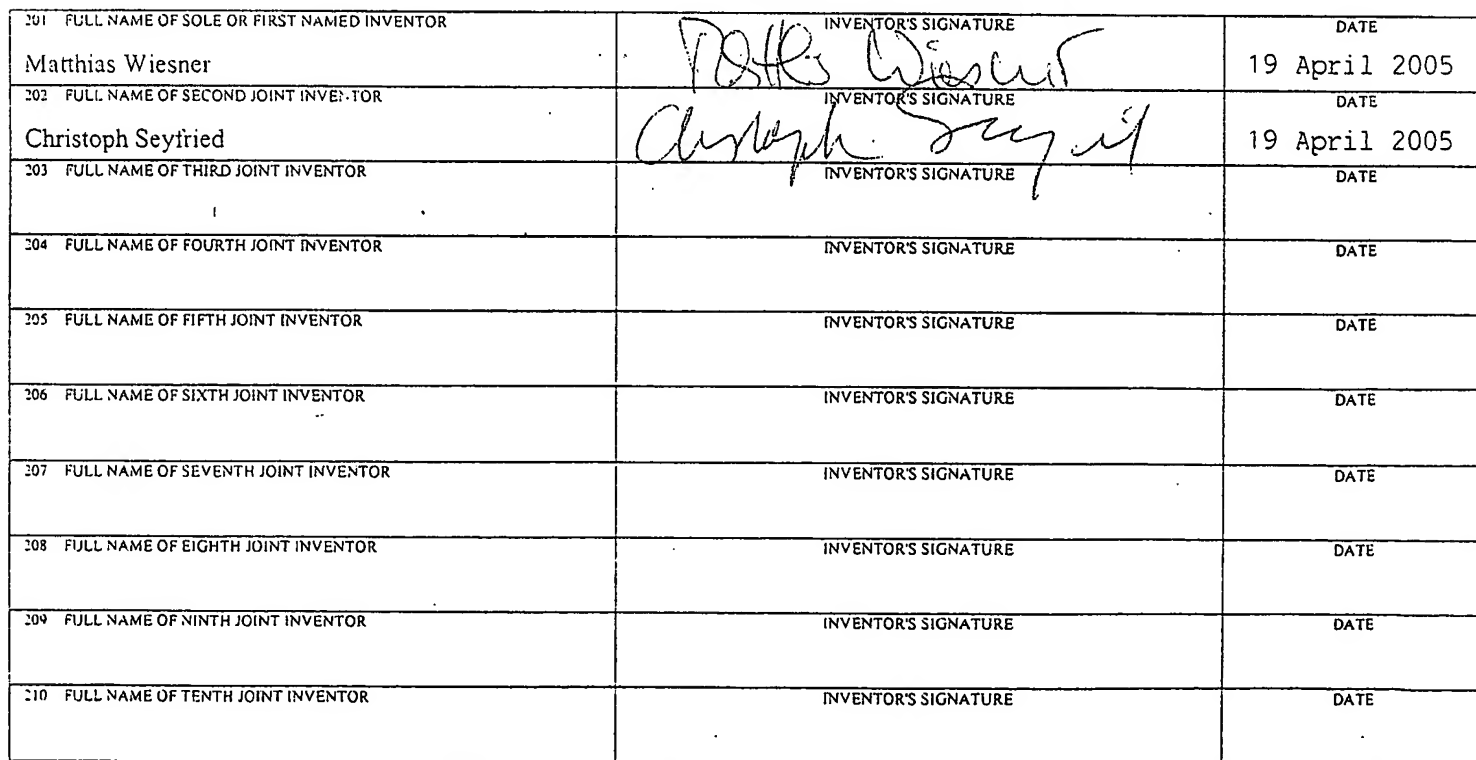 201 FULL NAME OF SOLE OR FIRST NAMED INVENTOR INVENTOR'S SIGNATURE DATE
Matthias Wiesner Matthias Wiesner 19 April 2005
202 FULL NAME OF SECOND JOINT INVENTOR INVENTOR'S SIGNATURE DATE
Christoph Seyfried Christoph Seyfried 19 April 2005
203 FULL NAME OF THIRD JOINT INVENTOR INVENTOR'S SIGNATURE DATE
204 FULL NAME OF FOURTH JOINT INVENTOR INVENTOR'S SIGNATURE DATE
205 FULL NAME OF FIFTH JOINT INVENTOR INVENTOR'S SIGNATURE DATE
206 FULL NAME OF SIXTH JOINT INVENTOR INVENTOR'S SIGNATURE DATE
207 FULL NAME OF SEVENTH JOINT INVENTOR INVENTOR'S SIGNATURE DATE
208 FULL NAME OF EIGHTH JOINT INVENTOR INVENTOR'S SIGNATURE DATE
209 FULL NAME OF NINTH JOINT INVENTOR INVENTOR'S SIGNATURE DATE
210 FULL NAME OF TENTH JOINT INVENTOR INVENTOR'S SIGNATURE DATE